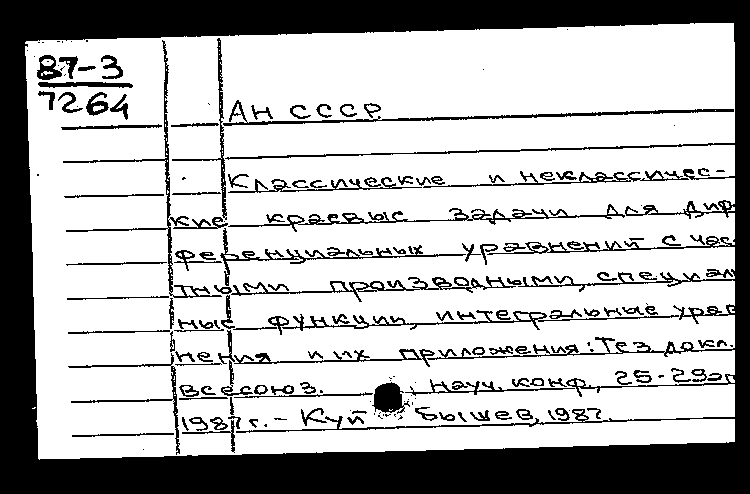 87-3
7264
АН СССР
Классические и неклассичес-
кие краевые задачи для диф-
ференциальных уравнений с час-
тными производными, специаль
ные функции, интегральные урав
нения и их приложения: Тез. докл.
Всесоюз. науч. конф., 25-29
1987 г. - Куйбышев, 1987.